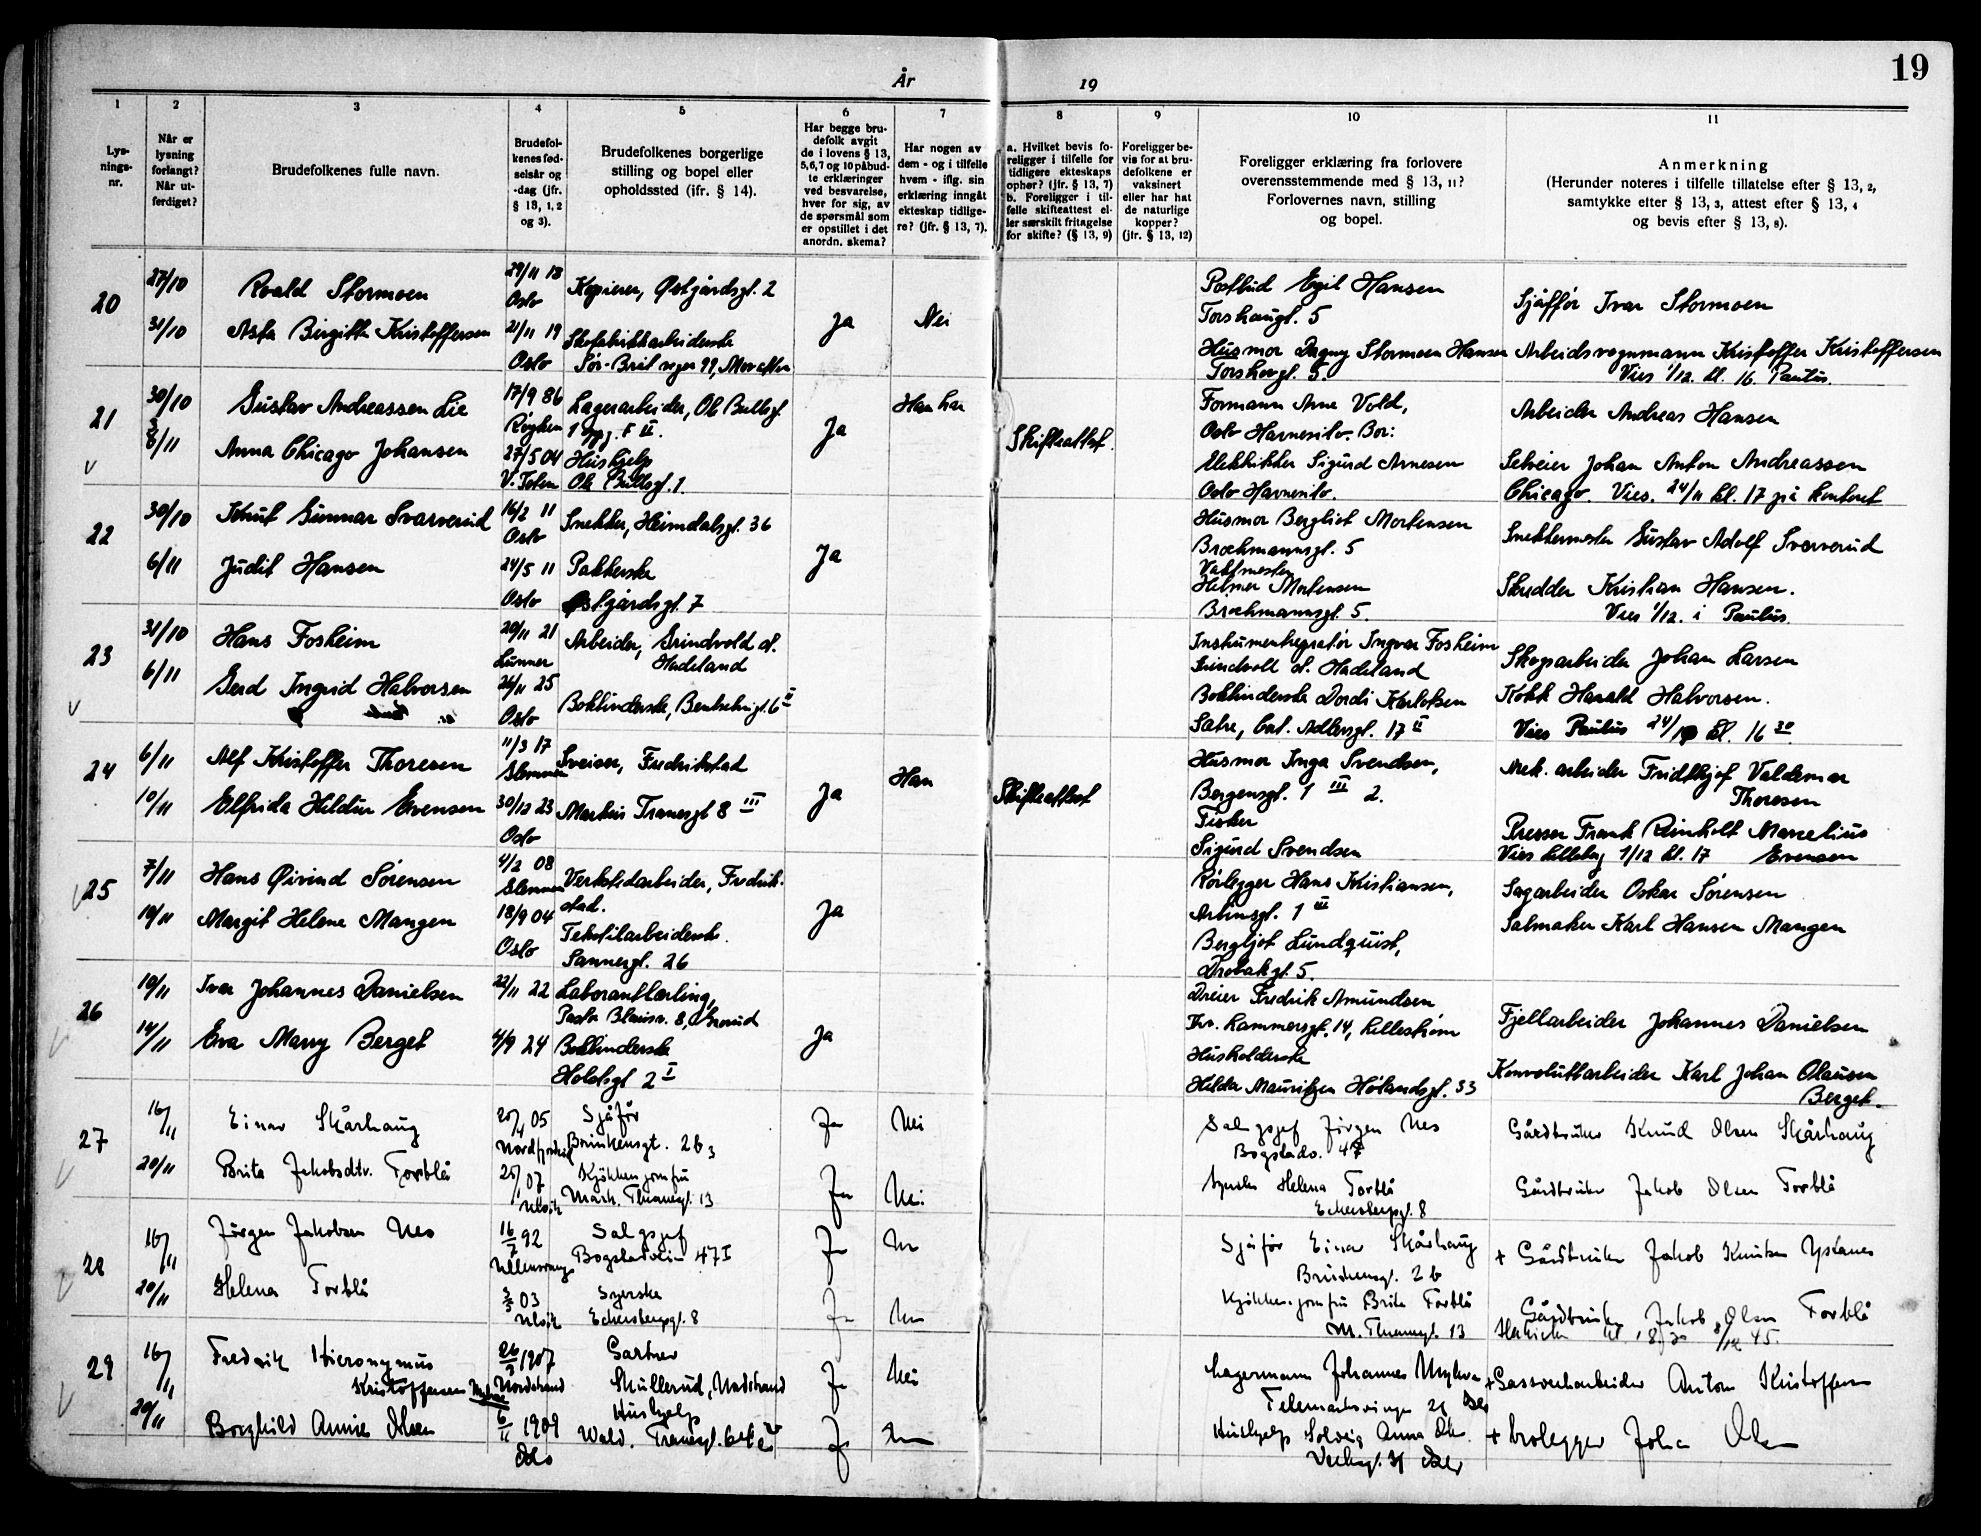 19
År 19
1 2 3 4 5 6 7 8 9 10 11
Lys-
nings-
nr.
Når er
lysning
forlangt?
Når ut-
ferdiget?
Brudefolkenes fulle navn.
Brudefol-
kenes fød-
selsår og
-dag (jfr.
§ 13, 1, 2
og 3).
Brudefolkenes borgerlige
stilling og bopel eller
opholdssted (ifr. § 14).
Har begge bru-
defolk avgit
de i lovens § 13,
5,6,7 og 10 påbud-
te erklæringer
ved besvarelse,
hver for sig, av
de spørsmål som
er opstillet i det
anordn. skema?
Har nogen av
dem - og i tilfelle
hvem - iflg. sin
erklæring inngåt
ekteskap tidlige-
re? (jfr. § 13, 7).
a. Hvilket bevis fo-
religger i tilfelle for
tidligere ekteskaps
ophør? (jfr. § 13, 7)
b. Foreligger i til-
felle skifteattest el-
ler særskilt fritagelse
for skifte? (§ 13, 9)
Foreligger be-
vis for at bru-
defolkene er
vaksinert
eller har hat
de naturlige
kopper?
(jfr. § 13, 12)
Foreligger erklæring fra forlovere
overensstemmende med § 13, 11?
Forlovernes navn, stilling
og bopel.
Anmerkning
(Herunder noteres i tilfelle tillatelse efter § 13, 2,
samtykke efter § 13, 3, attest efter § 13, 4
og bevis efter § 13, 8).
20
27/10 Roald Stormoen 29/11 18 Oslo Kopierer, Østgårdsgt. 2
31/10 Asta Birgitte Kristoffersen 21/11 19 Oslo Skofabrikkarbeiderske
Ja Nei
Postbud Egil Hansen
Torshauggt. 5
Husmor Dagny Stormoen Hansen
Torshovgt. 5.
Sjåffør Ivar Stormoen
Arbeidsvognmann Kristoffer Kristoffersen
Vies 1/12. kl. 16 Paulus.
21
30/10 Gustav Andreassen Lie 17/9 86 Røyken Lagerarbeider, Ole Bullsgt.
8/11 Anna Chicago Johansen 27/5 04 V. Toten Hushjelp
Ole Bullsgt. 1.
Ja Han har Skifteattest.
Formann Arne Vold,
Oslo Havnesilo. Bor:
Elektriker Sigurd Arnesen
Oslo Havnesilo.
Arbeider Andreas Hansen
Selveier Johan Anton Andreassen
Chicago. Vies. 24/11 kl. 17 på kontoret
22
30/10 Knut Gunnar Svarverud 16/2 11 Oslo Snekker, Heimdalsgt. 36
6/11 Judit Hansen 24/5 11 Oslo Pakkerske
Østgårdsgt. 7
Ja
Husmor Bergliot Mortensen
Brochmannsgt. 5
Vaktmester
Helmer Mortensen
Brochmannsgt. 5.
Snekkermester Gustav Adolf Svarverud
Skredder Kristian Hansen.
Vies 1/12. i Paulus.
23
31/10 Hans Fosheim 20/11 21 Lunner Arbeider, Grindvold st.
Hadeland
6/11 Gerd Ingrid Halvorsen 24/11 25 Oslo Bokbinderske, Bentsebrugt. 6 II
Instrumentreparatør Ingvar Fosheim
Grindvoll st. Hadeland
Bokbinderske Dordi Karlotsen
Sætre, Cort Adlersgt. 17 II
Skogsarbeider Johan Larsen
Kokk Harald Halvorsen.
Vies Paulus kl. 16 30.
24
6/11 Alf Kristoffer Thoresen 11/3 17 Glemmen Sveiser, Fredrikstad
10/11 Elfrida Heldur Evensen 30/12 23 Oslo Markus Tranesgt 8 III
Ja Han Skifteattest
Husmor Inga Svendsen,
Bergensgt. 1 III 2.
Fisker
Sigurd Svendsen
Mek. arbeider Fridtjof Valdemar
Thoresen
Presser Frank Reinholt Marcelius
Vies Lilleborg 1/12 kl. 17 Evensen
25
7/11 Hans Øivind Sørensen 4/2 08 Glemmen Verkstedarbeider, Fredrik-
stad.
10/11 Margit Helene Mangen 18/9 04 Oslo Tekstilarbeiderske.
Sannergt. 26
Ja
Rørlegger Hans Kristiansen,
Arbinsgt. 1 III
Bergljot Lundquist,
Drøbakgt. 5.
Sagarbeider Oskar Sørensen
Salmaker Karl Hansen Mangen
26
10/11 Ivar Johannes Danielsen 22/11 22 Laborantlærling,
14/11 Eva Marry Berget 4/9 24 Bokbinderske
Holstgt 2 I
Ja
Dreier Fredrik Amundsen
Thv. Lammersgt. 14, Lillestrøm
Husholderske
Helder Mauritzen Hølandsgt. 33
Fjellarbeider Johannes Danielsen
Konvoluttarbeider Karl Johan Olausen
Berget.
27
16/11 Einar Skårhaug 20/4 05 Sjåfør
20/11 Brita Jakobsdtr. Forblå 25/1 07 Kjøkkenjomfru
Mark. Thranesgt. 13
Ja Nei
Ja Nei
Salgsjef Jørgen Nes
Bogstadv. 47
Syerske Helena Forblå
Eckersbergsgt. 8
Gårdbruker Knud Olsen Skårhaug
Gårdbruker Jakob Olsen Forblå
28
16/11 Jørgen Jakobsen Nes 16/7 92 Salgsjef
Bogstadveien 47 I
20/11 Helena Forblå 3/5 03 Syerske
Eckersbergsgt. 8
Ja
Ja
Sjåfør Einar Skårhaug
Kjøkkenjomfru Brita Forblå
M. Thranesgt. 13
+ Gårdbruker Jakob Knutsen Ystanes
Gårdbruker Jakob Olsen Forblå
29
16/11 Fredrik Hieronymus
Kristoffersen 26/3 1907 Nordstrand Gartner
Skullerud, Nordstrand
20/11 Borghild Annie Olsen 6/11 1909 Oslo Hushjelp
Ja Nei
Lagermann Johannes Myhre
Hushjelp Solveig Anna
+ Gassverkarbeider Anton Kristoffersen
+ Brolegger Johan Olsen